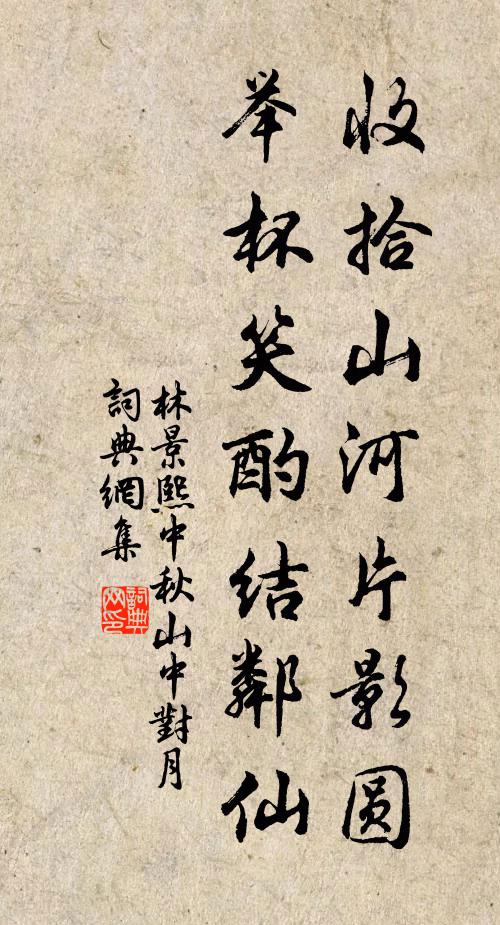 收拾山河片影圆
举杯笑酌结鄰仙
林景熙中秋山中對月
詞典網集
詞典网印